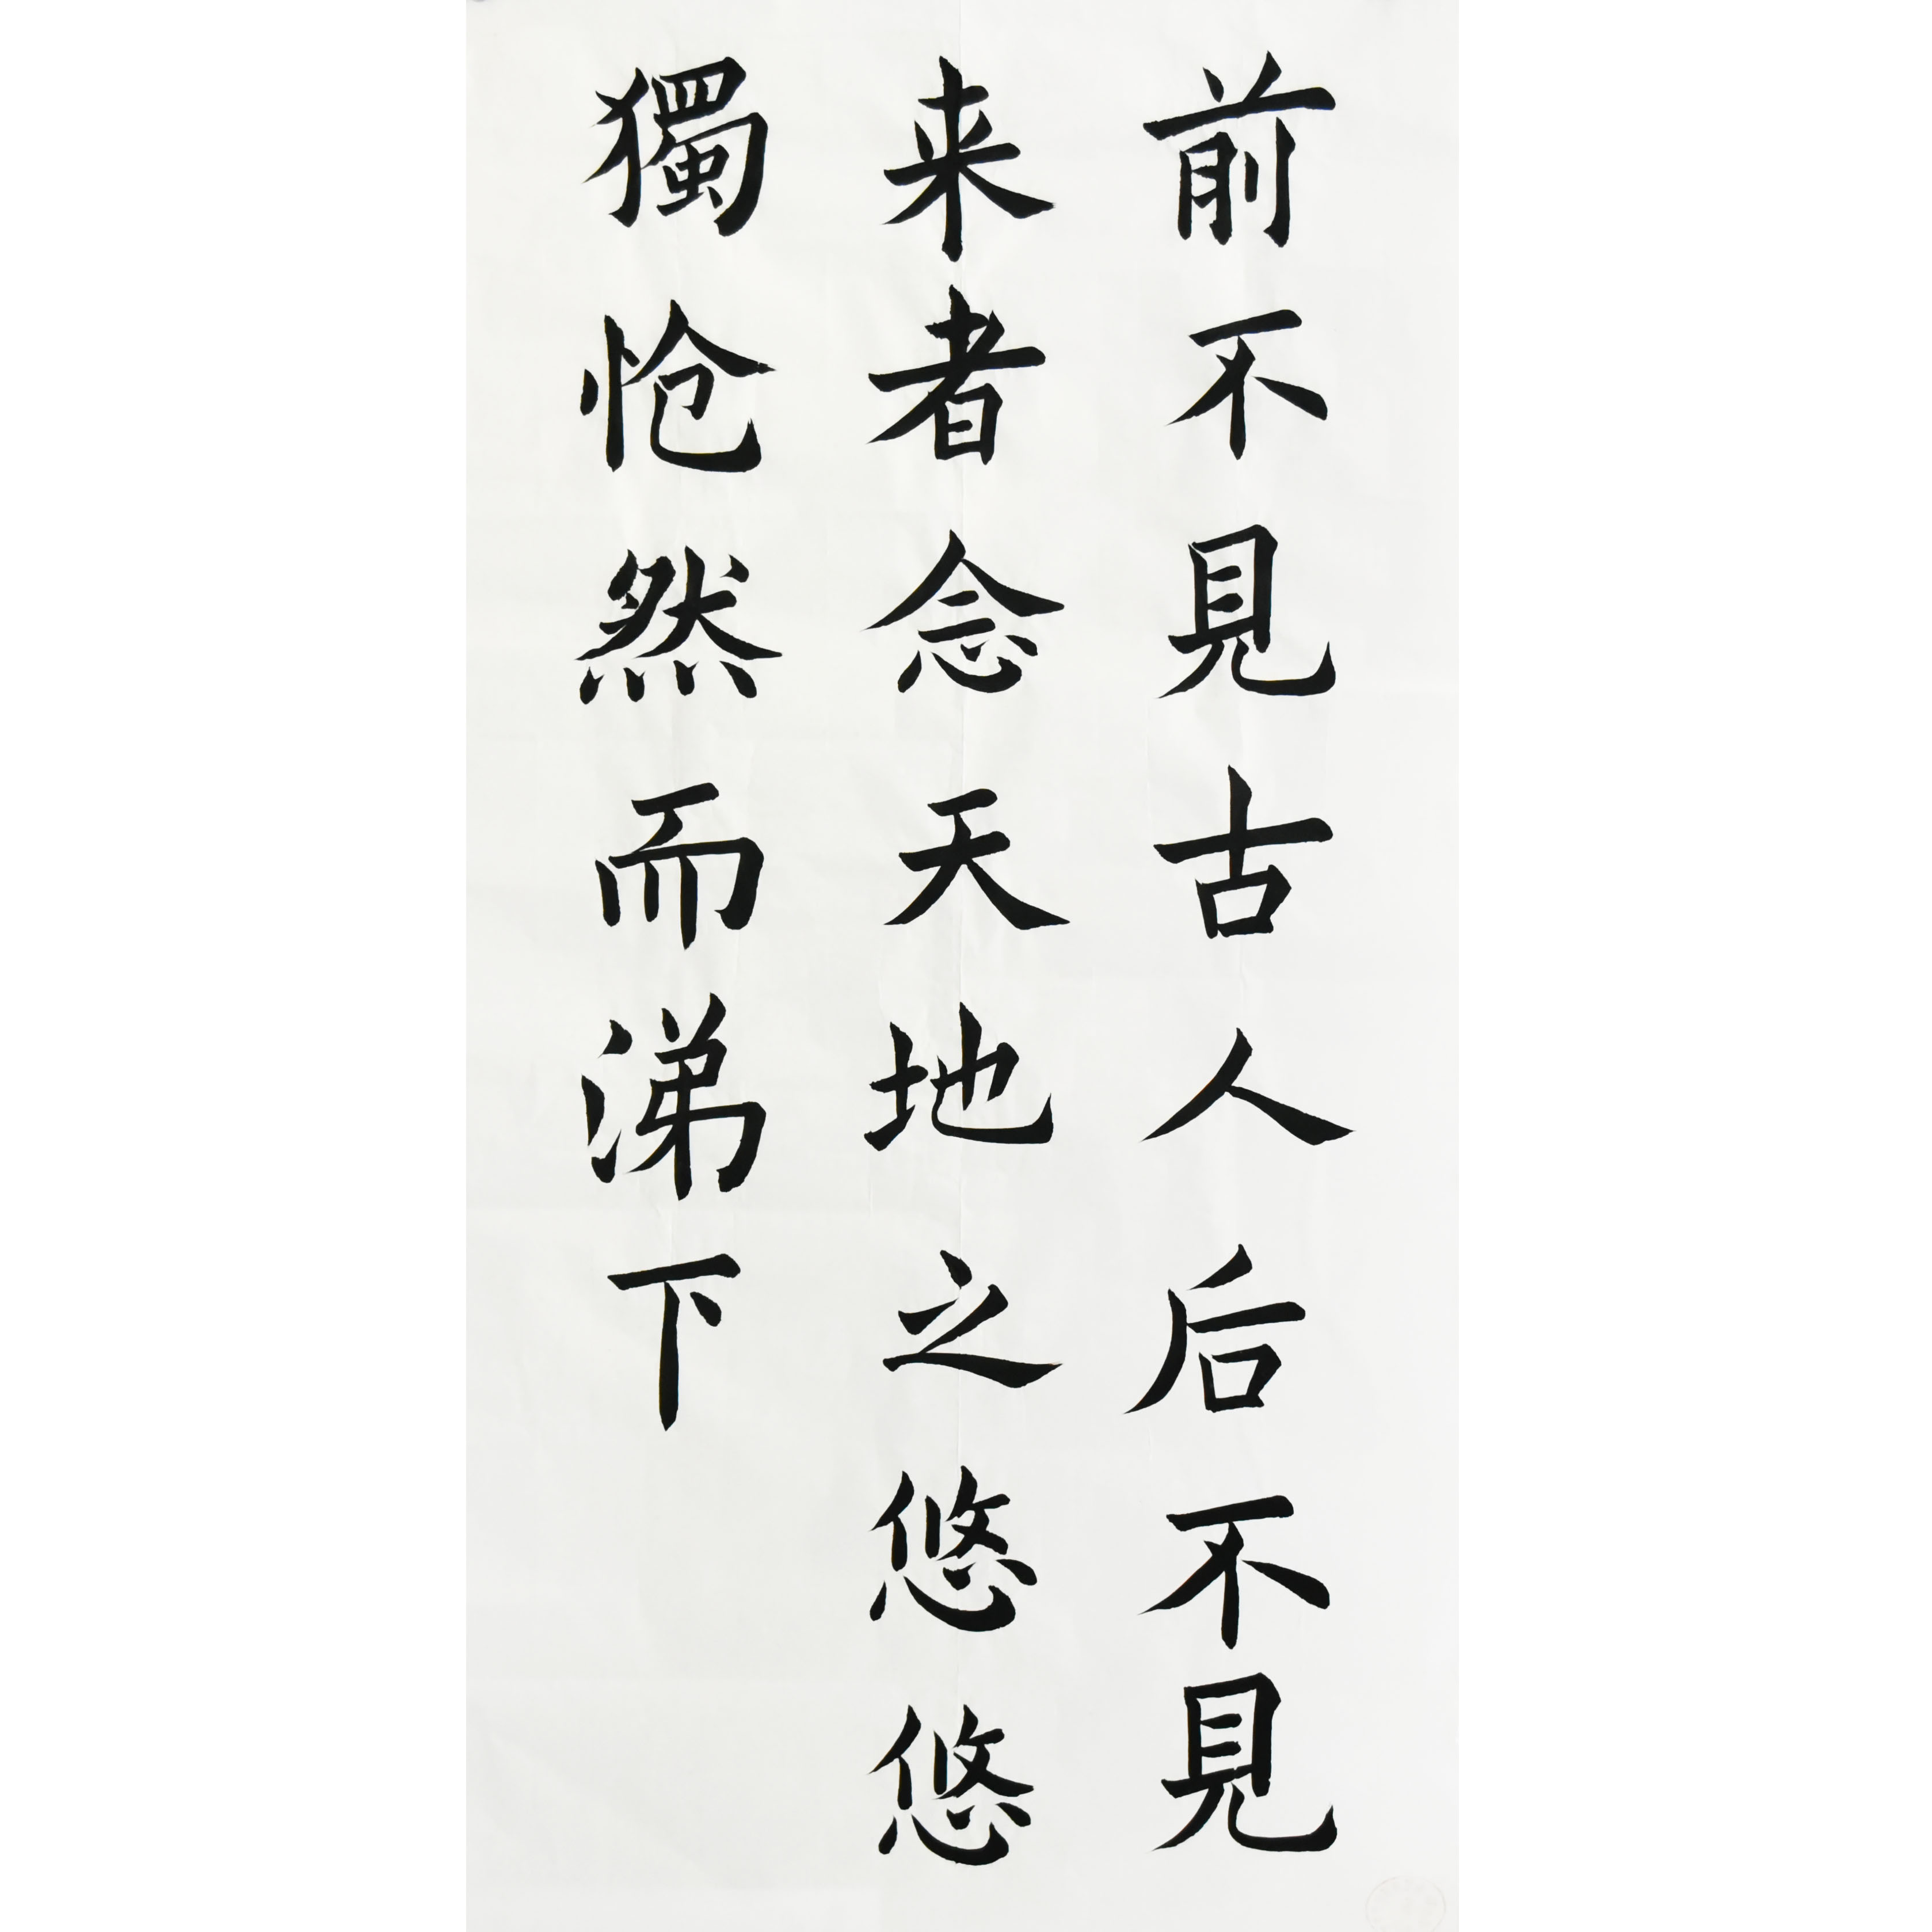 前不見古人后不見
来者念天地之悠悠
獨怆然而涕下